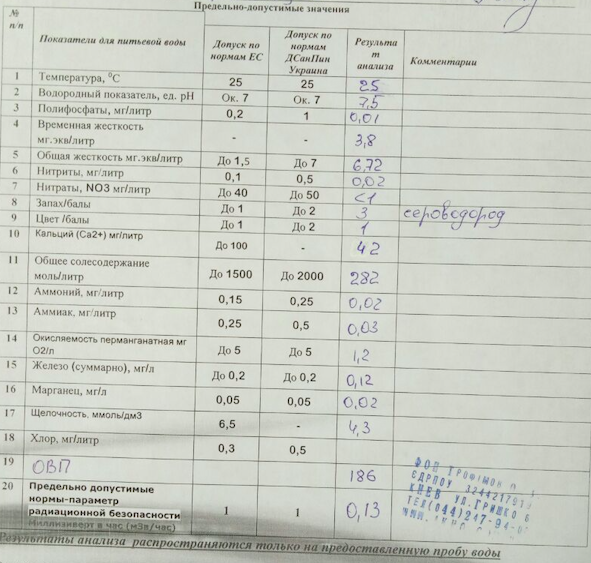 Предельно-допустимые значения
№ п/п | Показатели для питьевой воды | Допуск по нормам ЕС | Допуск по нормам ДСанПин Украина | Результат анализа | Комментарии
1 | Температура, °С | 25 | 25 | 25
2 | Водородный показатель, ед. pH | Ок. 7 | Ок. 7 | 7,5
3 | Полифосфаты, мг/литр | 0,2 | 1 | 0,01
4 | Временная жесткость мг.экв/литр | - | - | 3,8
5 | Общая жесткость мг.экв/литр | До 1,5 | До 7 | 6,72
6 | Нитриты, мг/литр | 0,1 | 0,5 | 0,02
7 | Нитраты, NO3 мг/литр | До 40 | До 50 | <1
8 | Запах/балы | До 1 | До 2 | 3 | сероводород
9 | Цвет /балы | До 1 | До 2 | 1
10 | Кальций (Са2+) мг/литр | До 100 | - | 42
11 | Общее солесодержание моль/литр | До 1500 | До 2000 | 282
12 | Аммоний, мг/литр | 0,15 | 0,25 | 0,02
13 | Аммиак, мг/литр | 0,25 | 0,5 | 0,03
14 | Окисляемость перманганатная мг О2/л | До 5 | До 5 | 1,2
15 | Железо (суммарно), мг/л | До 0,2 | До 0,2 | 0,12
16 | Марганец, мг/л | 0,05 | 0,05 | 0,02
17 | Щелочность, ммоль/дм3 | 6,5 | - | 4,3
18 | Хлор, мг/литр | 0,3 | 0,5
19 | ОВП | 186
20 | Предельно допустимые нормы-параметр радиационной безопасности Миллизиверт в час (мЗв/час) | 1 | 1 | 0,13
ФОП
ЄДРПОУ
КИЕВ УЛ.ГРИШКО
ТЕЛ(044)247-94-
Результаты анализа распространяются только на предоставленную пробу воды